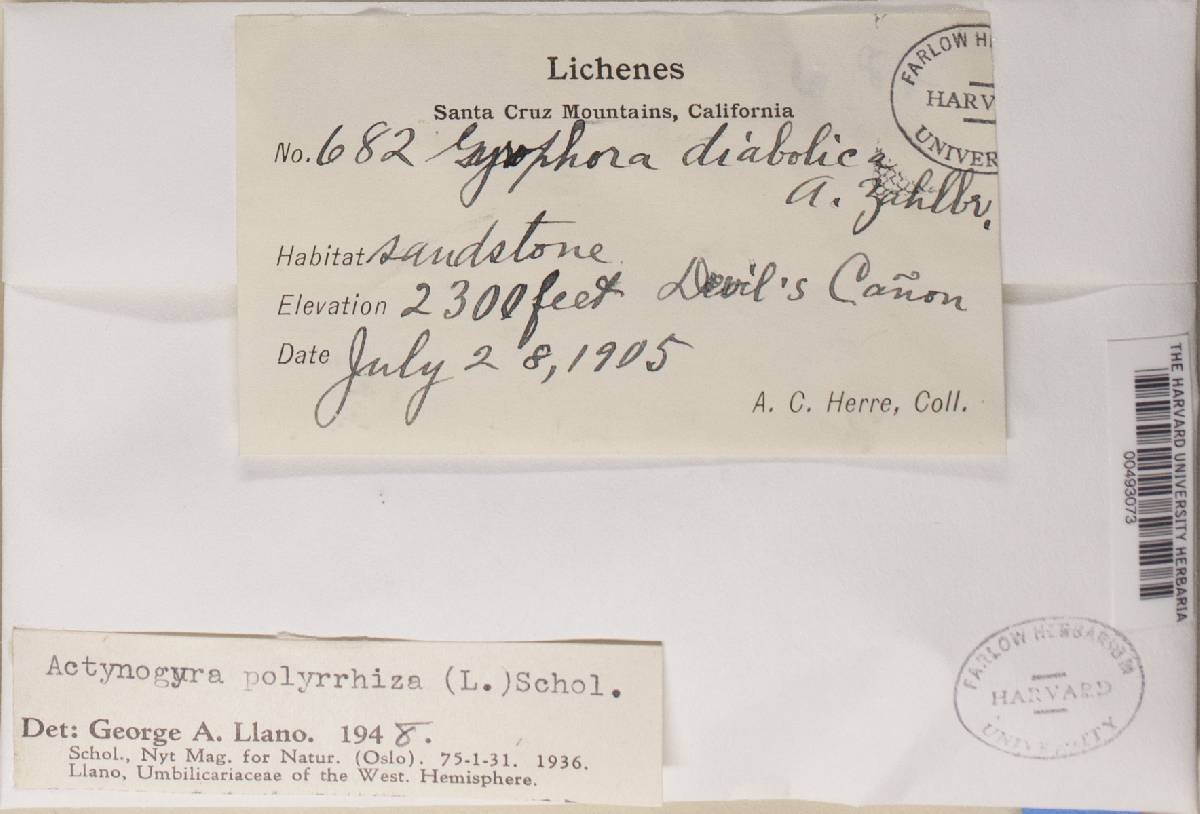 Lichenes
Santa Cruz Mountains, California
No. 682 Gyrophora diabolica
A. Zahlbr.
Habitat sandstone
Elevation 2300 feet Devil's Cañon
Date July 28, 1905
A. C. Herre, Coll.
FARLOW HE
HARV
UNIVER
THE HARVARD UNIVERSITY HERBARIA
00493073
FARLOW HERBARIUM
HARVARD
UNIVERSITY
Actynogyra polyrrhiza (L.)Schol.
Det: George A. Llano. 1948.
Schol., Nyt Mag. for Natur. (Oslo). 75-1-31. 1936.
Llano, Umbilicariaceae of the West. Hemisphere.